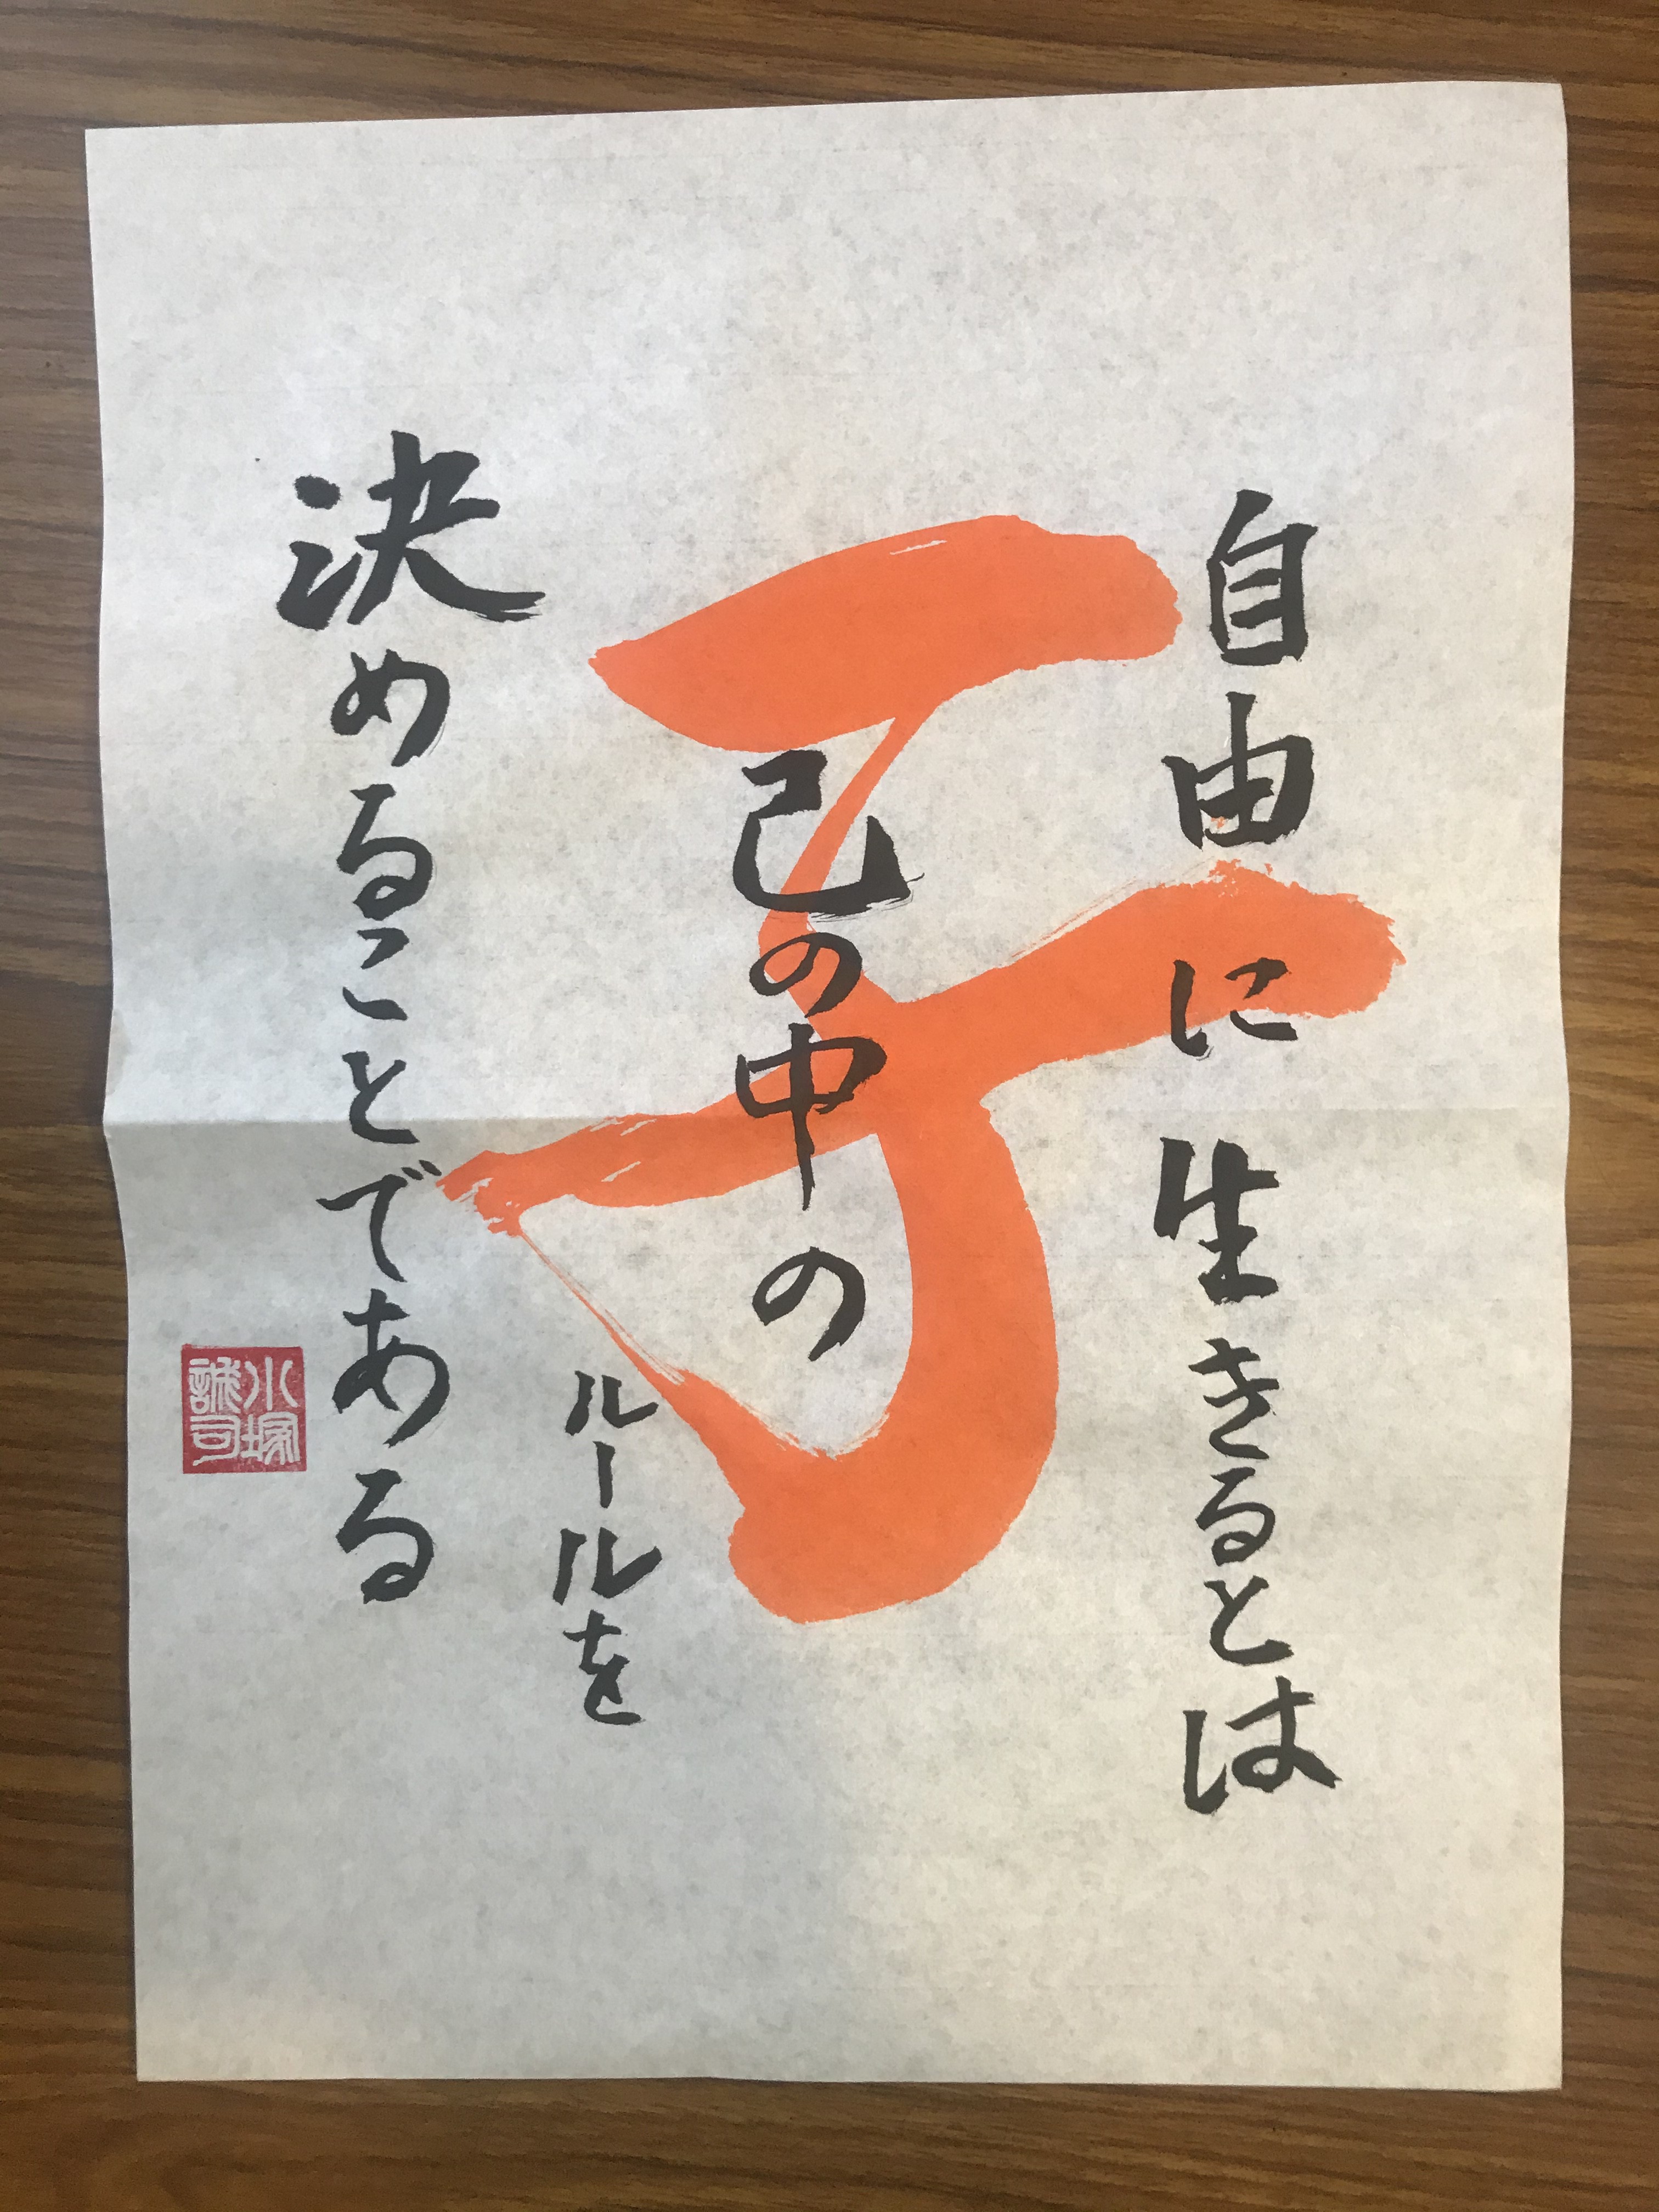 自由に生きるとは
己の中の
ルールを
決めることである
子
小塚
誠司